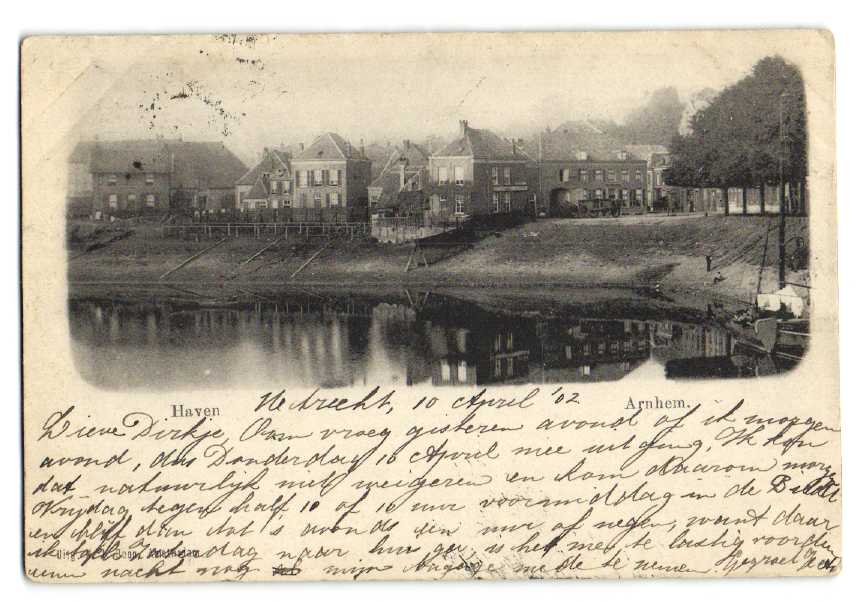 Haven
Arnhem.
Utrecht, 10 April '02
Lieve Dirkje, Oom vroeg gisteren avond of ik morgen
avond, dus Donderdag 10 April mee uitging. Ik kon
dat natuurlijk niet weigeren en kom daarom morg
Vrijdag tegen half 10 of 10 uur voormiddag in de Bildt
en blijf dan tot 's avonds een uur of negen, want daar
ik Zaterdag naar huis ga is het me te lastig voor den
eenen nacht nog mijn bagage mede te nemen. Gegroet